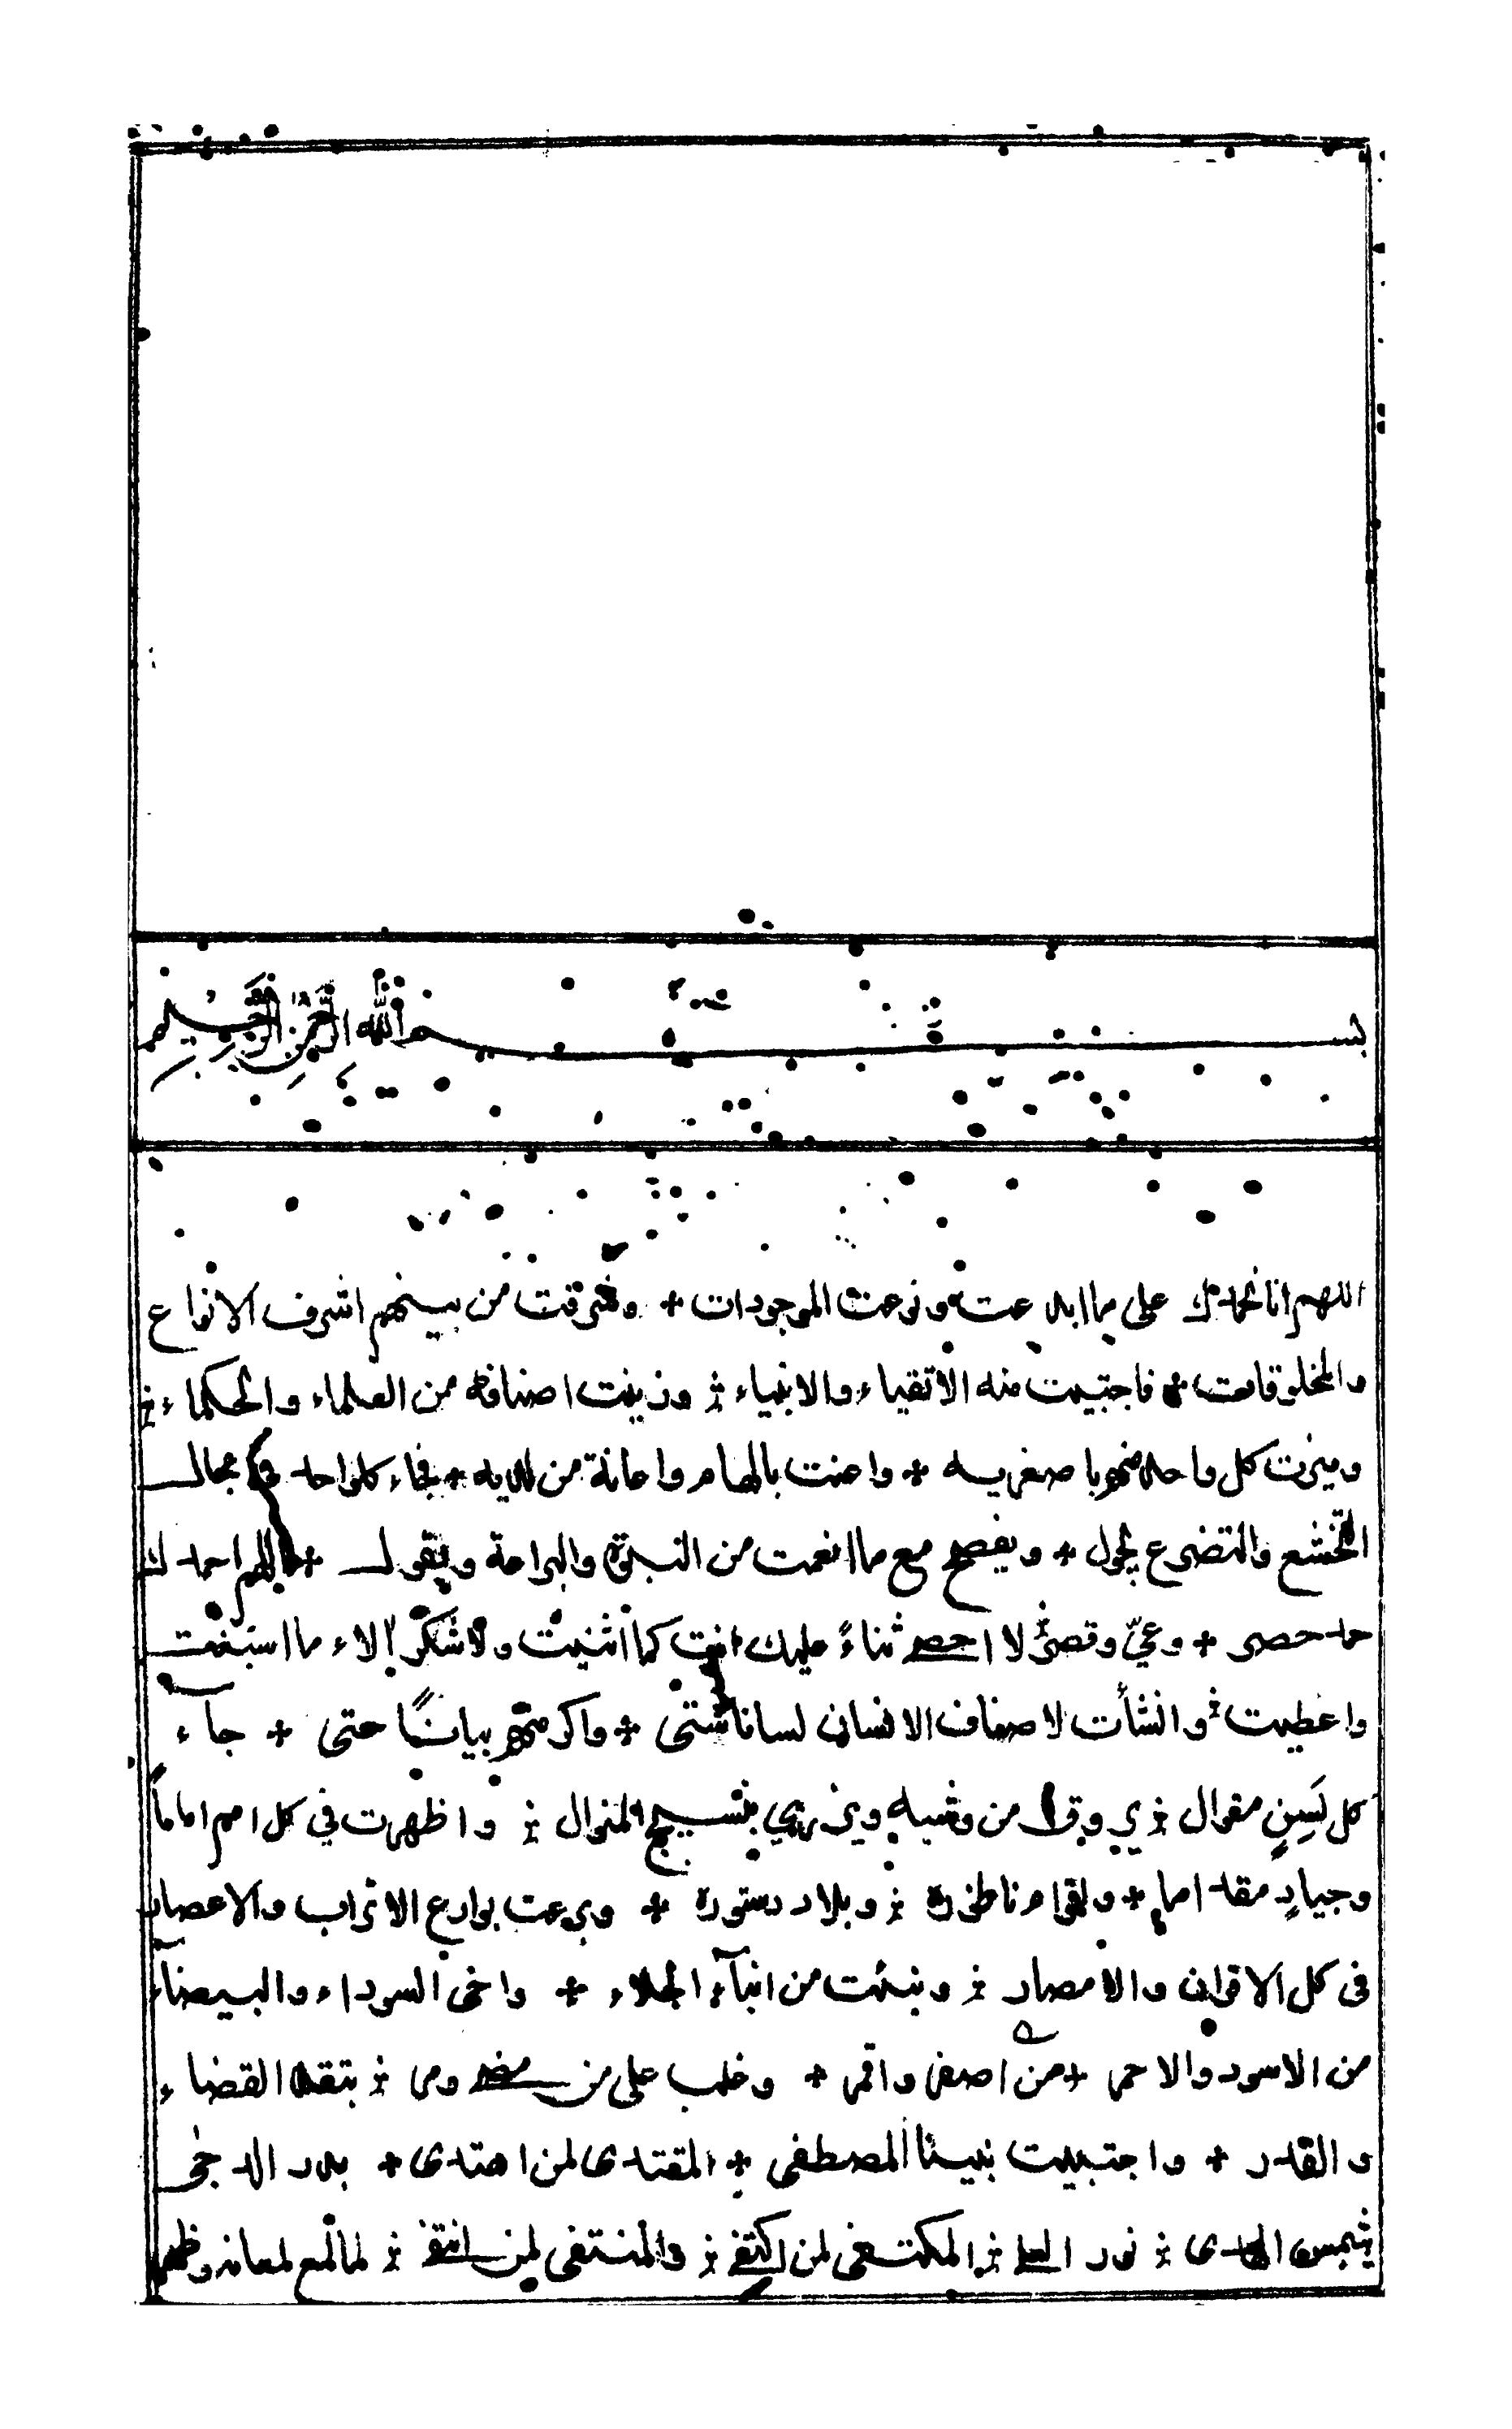 بسم الله الرحمن الرحيم
اللهم انا نحمدك على ما ابدعت ونوعت الموجودات + وشرقت من بينهم اشرف الانواع
والمخلوقات + فاجتبيت منه الاتقياء والانبياء ÷ وزينت اصنافه من العلماء والحكماء ÷
وميزت كل واحد منهم با صغريه + واعنت بالهام واعانة من لديه + فجاء كلواحد في مجال
التخشع والتضرع يجول + ويفصح مع ما انعمت من النبوة والبراعة ويقول + اللهم احمدك
حمد حصى + وعيّ وقصى لا احصى ثناءً عليك انت كما اثنيت ولا شكر آلاء ما اسبغت
واعطيت ÷ وانشأت لاصناف الانسان لسانا شتى + واكرمتهم بيانا حتى + جاء
كل لسن مقوال ÷ من وشيه ويزري بنسيج المنوال ÷ واظهرت في كل امم اماماً
وجياد مقداما + ولقوام ناظورة ÷ وبلاد دستورة + الاتراب والاعصار
فى كل الاقران والامصار ÷ من انبآء + السوداء والبيضاء
من الاسود والاحمر + من اصفر واقمر + وغلب على من مضى ÷ القضاء
والقدر + واجتبيت نبينا المصطفى + المقتدى لمن اهتدى + بدر الدجى
شمس الهدى ÷ نور ÷ المكتفى لمن اكتفى ÷ والمنتفى لمن انتفى ÷ لما لمع لمعانه وظهر